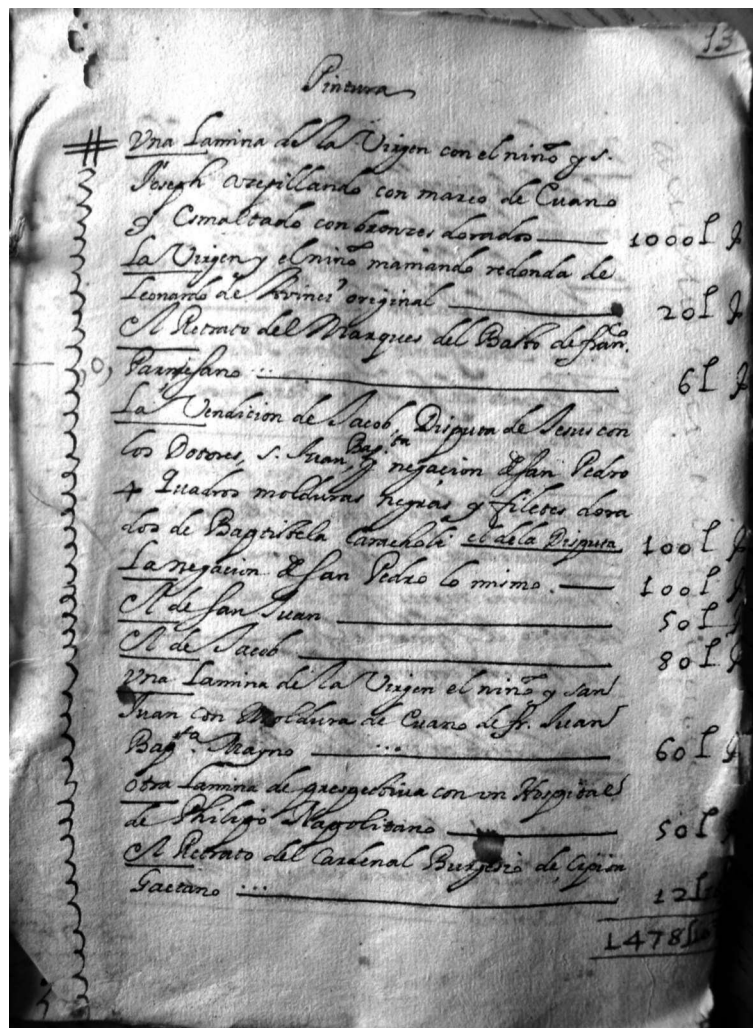 13
Pintura
# Una Lamina de la Virgen con el niño y s.
Joseph acepillando con marco de Cuano
y Esmaltado con bronzes dorados 1000 L
La Virgen y el niño mamando redonda de
Leonardo de Avinci original 20 L
El Retrato del Marques del Basto de fran.co
Parmesano ... 6 L
La Vendicion de Jacob, Disputa de Jesus con
los Dotores, s. Juan Bap.ta y negacion de san Pedro
4 Quadros molduras negras y filetes dora
dos de Baptistela Caracholi el de la Disputa 100 L
La negacion de san Pedro lo mismo. 100 L
El de san Juan 50 L
El de Jacob 80 L
Una Lamina de la Virgen el niño y san
Juan con Moldura de Cuano de fr. Juan
Bap.ta Magno ... 60 L
Otra Lamina de prespectiva con un Hospital
de Philipo Napolitano 50 L
El Retrato del Cardenal Burgesio de Cipion
Gaetano ... 12 L
1478 L